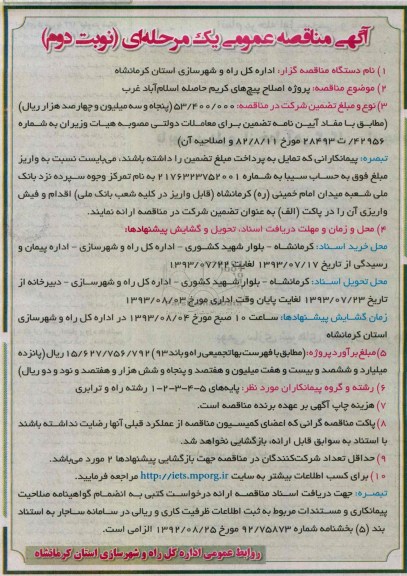 آگهی مناقصه عمومی یک مرحله‌ای (نوبت دوم)
۱) نام دستگاه مناقصه گزار: اداره کل راه و شهرسازی استان کرمانشاه
۲) موضوع مناقصه: پروژه اصلاح پیچ‌های کریم حاصله اسلام‌آباد غرب
۳) نوع و مبلغ تضمین شرکت در مناقصه: ۵۳/۴۰۰/۰۰۰ (پنجاه و سه میلیون و چهارصد هزار ریال)
(مطابق با مفاد آیین نامه تضمین برای معاملات دولتی مصوبه هیات وزیران به شماره
۴۲۹۵۶/ ت ۲۸۴۹۳ مورخ ۸۲/۸/۱۱ و اصلاحیه آن)
تبصره: پیمانکارانی که تمایل به پرداخت مبلغ تضمین را داشته باشند، می‌بایست نسبت به واریز
مبلغ فوق به حساب سیبا به شماره ۲۱۷۶۴۳۲۳۷۵۲۰۰۱ به نام تمرکز وجوه سپرده نزد بانک
ملی شعبه میدان امام خمینی (ره) کرمانشاه (قابل واریز در کلیه شعب بانک ملی) اقدام و فیش
واریزی آن را در پاکت (الف) به عنوان تضمین شرکت در مناقصه ارائه نمایند.
۴) محل و زمان و مهلت دریافت اسناد، تحویل و گشایش پیشنهادها:
محل خرید اسناد: کرمانشاه - بلوار شهید کشوری - اداره کل راه و شهرسازی - اداره پیمان و
رسیدگی از تاریخ ۱۳۹۳/۰۷/۱۷ لغایت ۱۳۹۳/۰۷/۲۲
محل تحویل اسناد: کرمانشاه - بلوار شهید کشوری - اداره کل راه و شهرسازی - دبیرخانه از
تاریخ ۱۳۹۳/۰۷/۲۳ لغایت پایان وقت اداری مورخ ۱۳۹۳/۰۸/۰۳
زمان گشایش پیشنهادها: ساعت ۱۰ صبح مورخ ۱۳۹۳/۰۸/۰۴ در اداره کل راه و شهرسازی
استان کرمانشاه
۵) مبلغ برآورد پروژه: (مطابق با فهرست بهای تجمیعی راه و باند ۹۳) ۱۵/۶۲۷/۷۵۶/۷۹۲ ریال (پانزده
میلیارد و ششصد و بیست و هفت میلیون و هفتصد و پنجاه و شش هزار و هفتصد و نود و دو ریال)
۶) رشته و گروه پیمانکاران مورد نظر: پایه‌های ۵-۴-۳-۲-۱ رشته راه و ترابری
۷) هزینه چاپ آگهی بر عهده برنده مناقصه است.
۸) پاکت مناقصه گرانی که اعضای کمیسیون مناقصه از عملکرد قبلی آنها رضایت نداشته باشند
با استناد به سوابق قابل ارائه، بازگشایی نخواهد شد.
۹) حداقل تعداد شرکت‌کنندگان در مناقصه جهت بازگشایی پیشنهادها ۲ مورد می‌باشد.
۱۰) برای کسب اطلاعات بیشتر به سایت http://iets.mporg.ir مراجعه فرمایید.
تبصره: جهت دریافت اسناد مناقصه ارائه درخواست کتبی به انضمام گواهینامه صلاحیت
پیمانکاری و مستندات مربوط به ثبت اطلاعات ظرفیت کاری و ریالی در سامانه ساجار به استناد
بند (۵) بخشنامه شماره ۹۲/۷۵۸۷۳ مورخ ۱۳۹۲/۰۸/۲۵ الزامی است.
روابط عمومی اداره کل راه و شهرسازی استان کرمانشاه